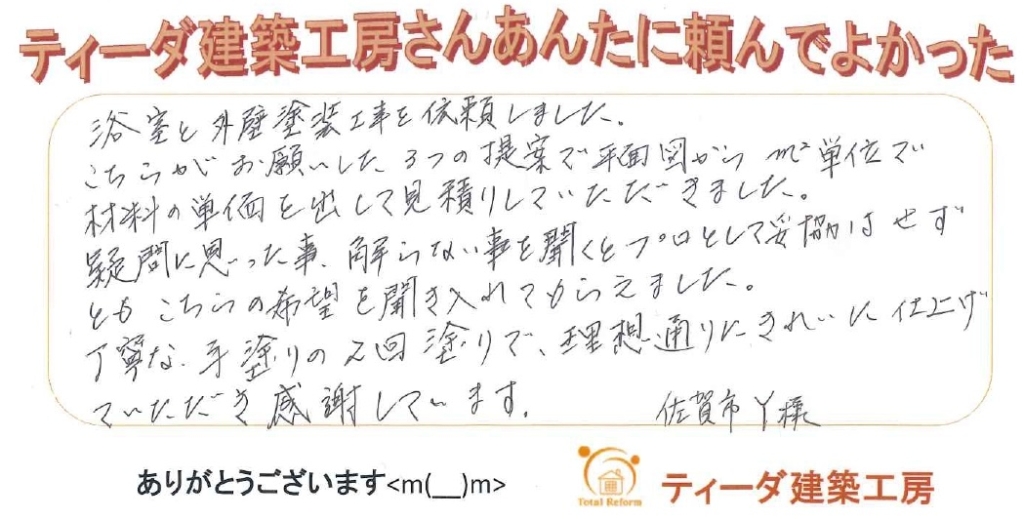 ティーダ建築工房さんあんたに頼んでよかった
浴室と外壁塗装工事を依頼しました。
こちらがお願いした3つの提案で平面図からm²単位で
材料の単価を出して見積りしていただきました。
疑問に思った事、解らない事を聞くとプロとして妥協はせず
ともこちらの希望を聞き入れてもらえました。
丁寧な手塗りの2回塗りで、理想通りにきれいに仕上げ
ていただき感謝しています。
佐賀市Y様
ありがとうございます<m(__)m>
Total Reform
ティーダ建築工房